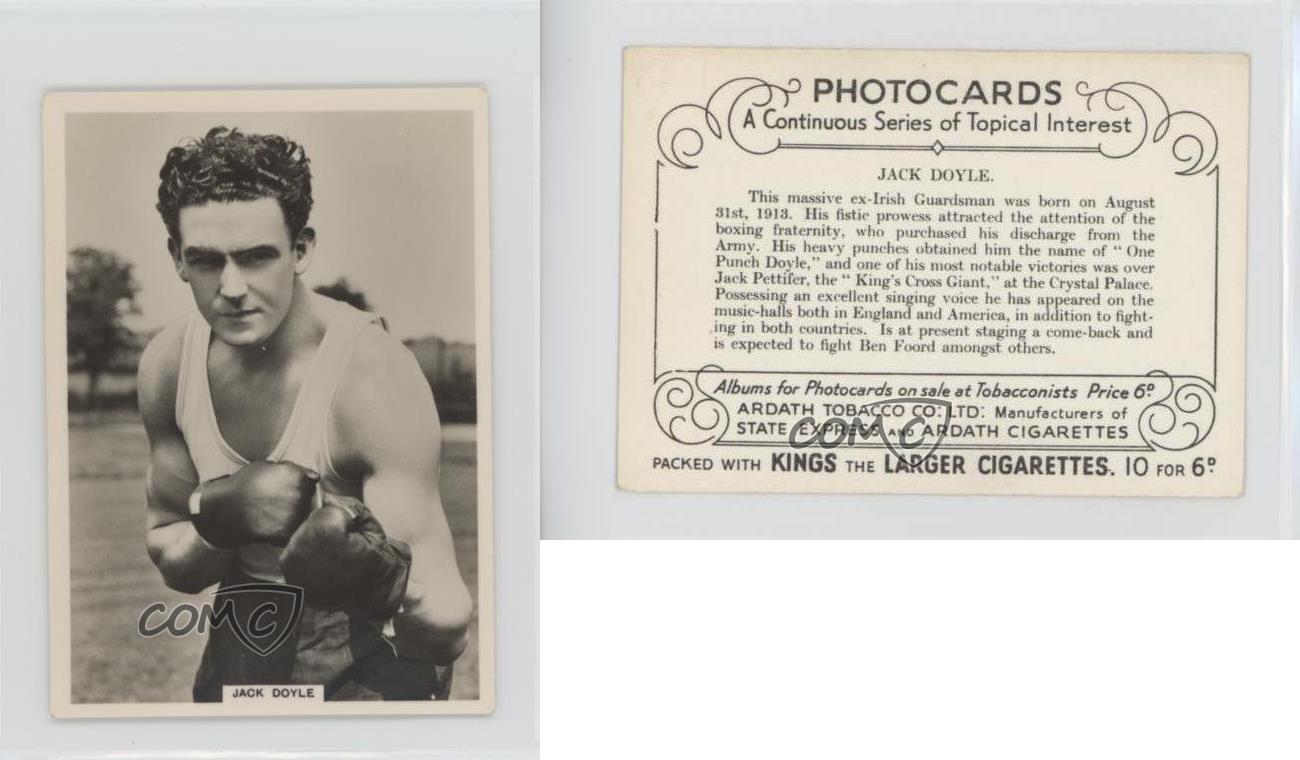 COMC
JACK DOYLE
PHOTOCARDS
A Continuous Series of Topical Interest
JACK DOYLE.
This massive ex-Irish Guardsman was born on August
31st, 1913. His fistic prowess attracted the attention of the
boxing fraternity, who purchased his discharge from the
Army. His heavy punches obtained him the name of “ One
Punch Doyle,” and one of his most notable victories was over
Jack Pettifer, the “ King's Cross Giant,” at the Crystal Palace.
Possessing an excellent singing voice he has appeared on the
music-halls both in England and America, in addition to fight-
ing in both countries. Is at present staging a come-back and
is expected to fight Ben Foord amongst others.
Albums for Photocards on sale at Tobacconists Price 6ᴰ.
ARDATH TOBACCO CO: LTD: Manufacturers of
STATE EXPRESS AND ARDATH CIGARETTES
COMC
PACKED WITH KINGS THE LARGER CIGARETTES. 10 FOR 6ᴰ.